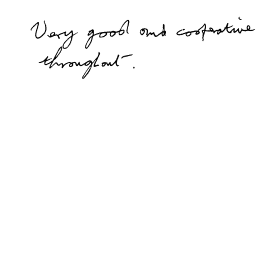 Very good and cooperative
throughout.